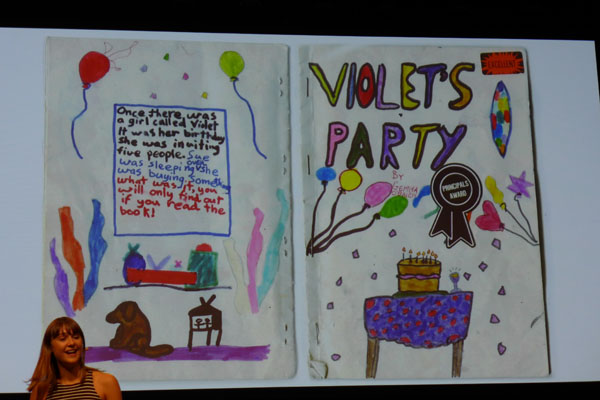 Once there was
a girl called Violet
It was her birthday
she was inviting
five people. Sue
was sleeping over she
was buying
what was it, you
will only find out
if you read the
book!
EXCELLENT
VIOLET'S
PARTY
BY
GEMMA
O'BRIEN
PRINCIPALS
AWARD